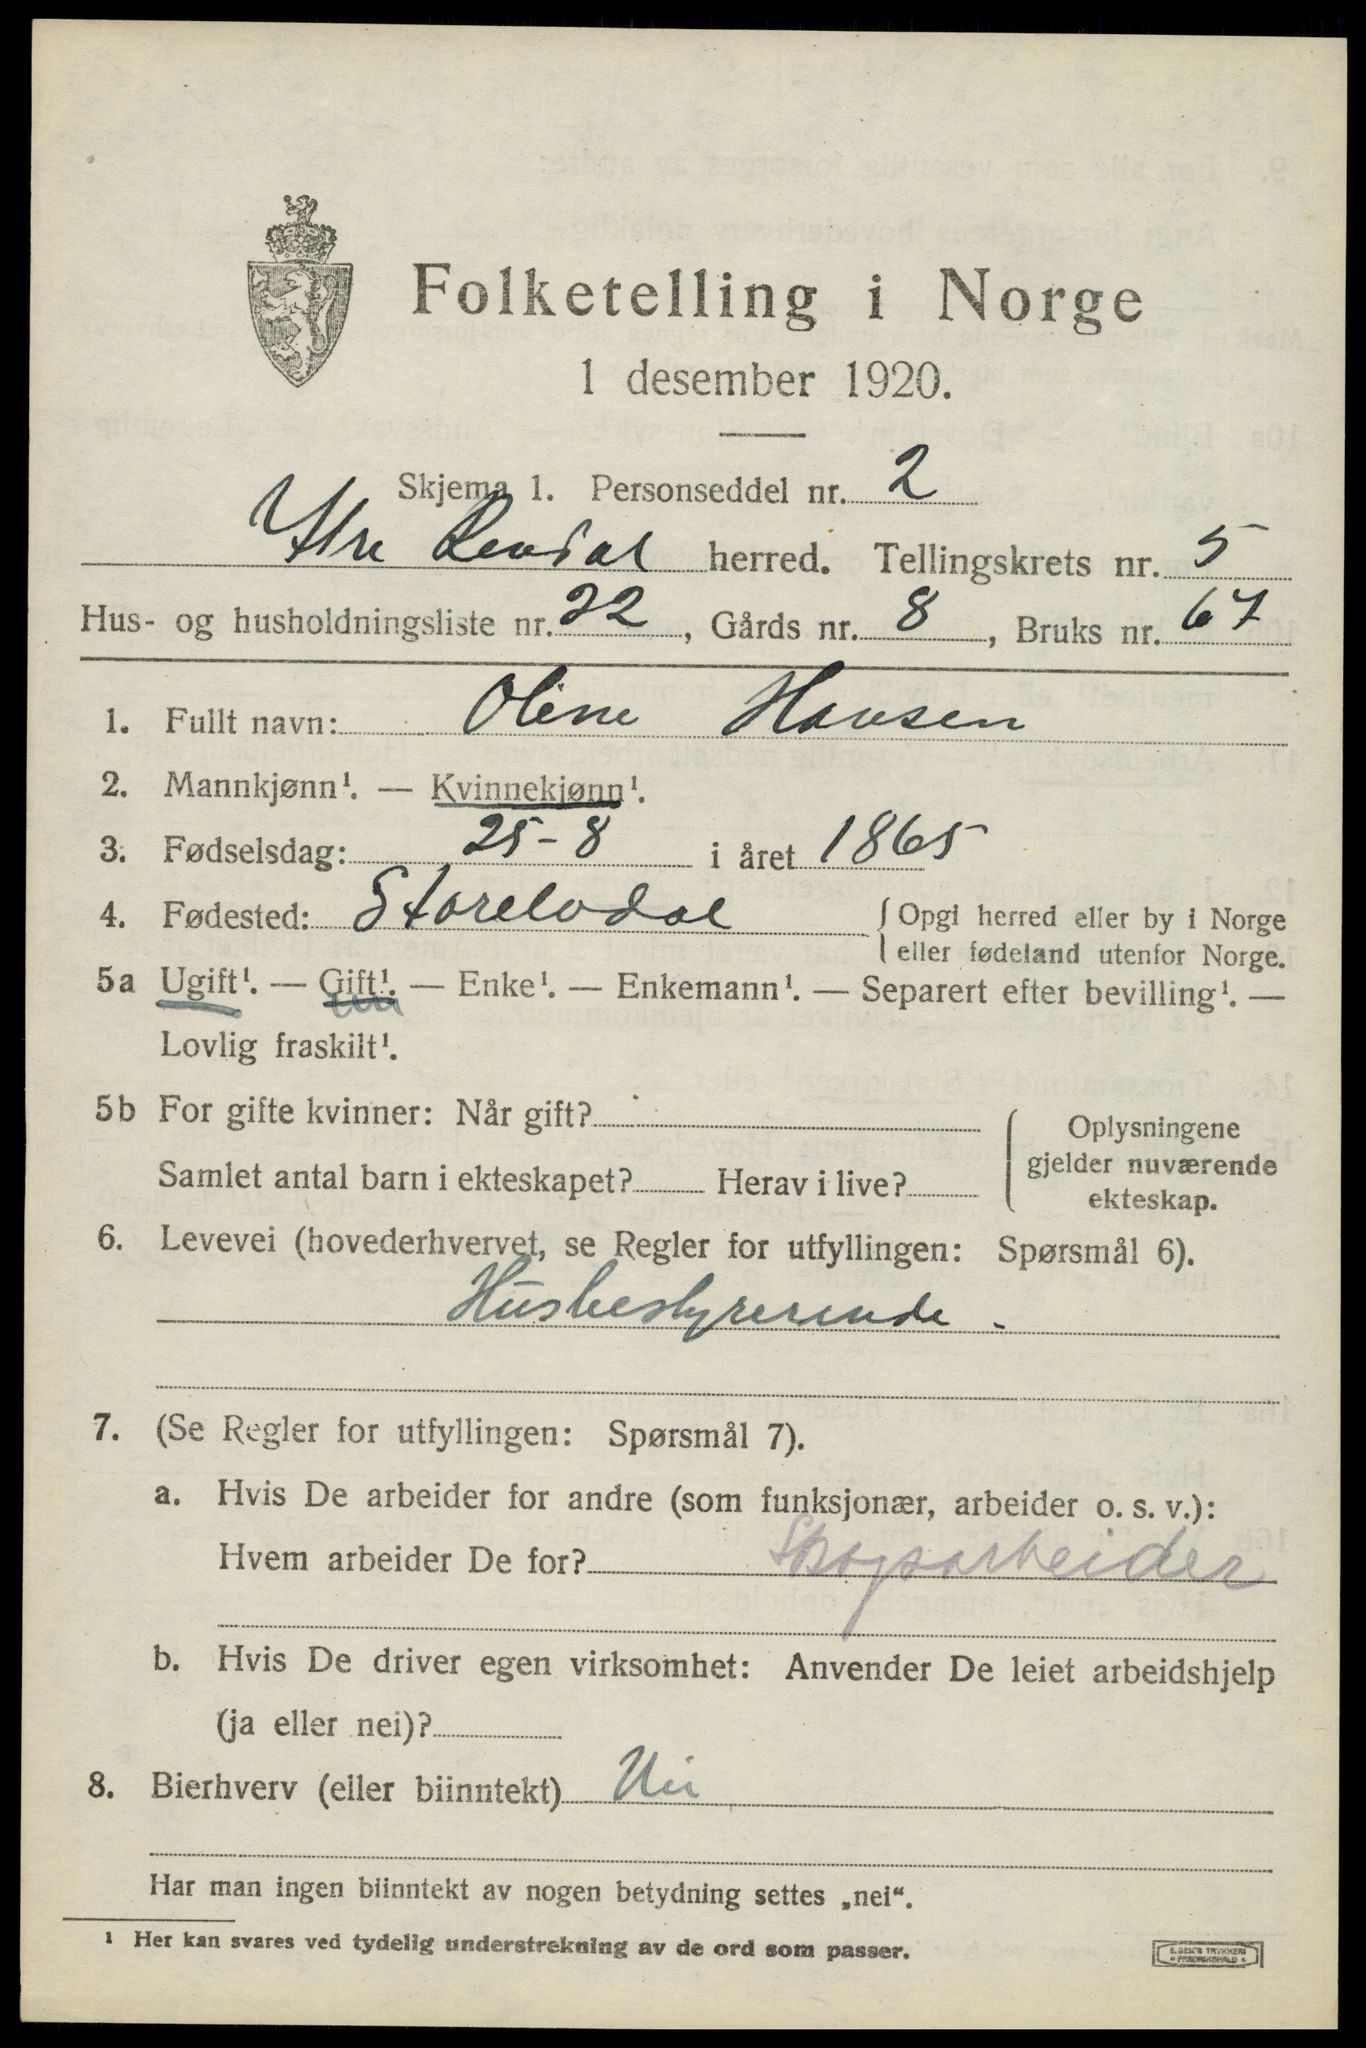 Folketelling i Norge
1 desember 1920.
Skjema 1. Personseddel nr. 2
Ytre Rendal herred. Tellingskrets nr. 5
Hus- og husholdningsliste nr. 22, Gårds nr. 8, Bruks nr. 67
1. Fullt navn: Oline Hansen
2. Mannkjønn¹. — Kvinnekjønn¹.
3. Fødselsdag: 25-8 i året 1865
4. Fødested: Storelvdal { Opgi herred eller by i Norge
eller fødeland utenfor Norge.
5a Ugift¹. — Gift¹. — Enke¹. — Enkemann¹. — Separert efter bevilling¹. —
Lovlig fraskilt¹.
5b For gifte kvinner: Når gift?
Samlet antal barn i ekteskapet? Herav i live?
Oplysningene
gjelder nuværende
ekteskap.
6. Levevei (hovederhvervet, se Regler for utfyllingen: Spørsmål 6).
Husbestyrerinde.
7. (Se Regler for utfyllingen: Spørsmål 7).
a. Hvis De arbeider for andre (som funksjonær, arbeider o. s. v.):
Hvem arbeider De for? Skogsarbeider
b. Hvis De driver egen virksomhet: Anvender De leiet arbeidshjelp
(ja eller nei)?
8. Bierhverv (eller biinntekt) Nei
Har man ingen biinntekt av nogen betydning settes „nei“.
¹ Her kan svares ved tydelig understrekning av de ord som passer.